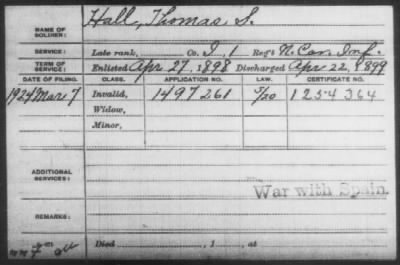 NAME OF SOLDIER: Hall, Thomas S.
SERVICE: Late rank, Co. I, 1 Reg't N. Car. Inf.
TERM OF SERVICE: Enlisted Apr 27, 1898 Discharged Apr 22, 1899
DATE OF FILING. CLASS. APPLICATION NO. LAW. CERTIFICATE NO.
1924 Mar 7 Invalid, 1497261 5/20 1254364
Widow,
Minor,
ADDITIONAL SERVICES:
War with Spain.
REMARKS:
Died , 1 , at